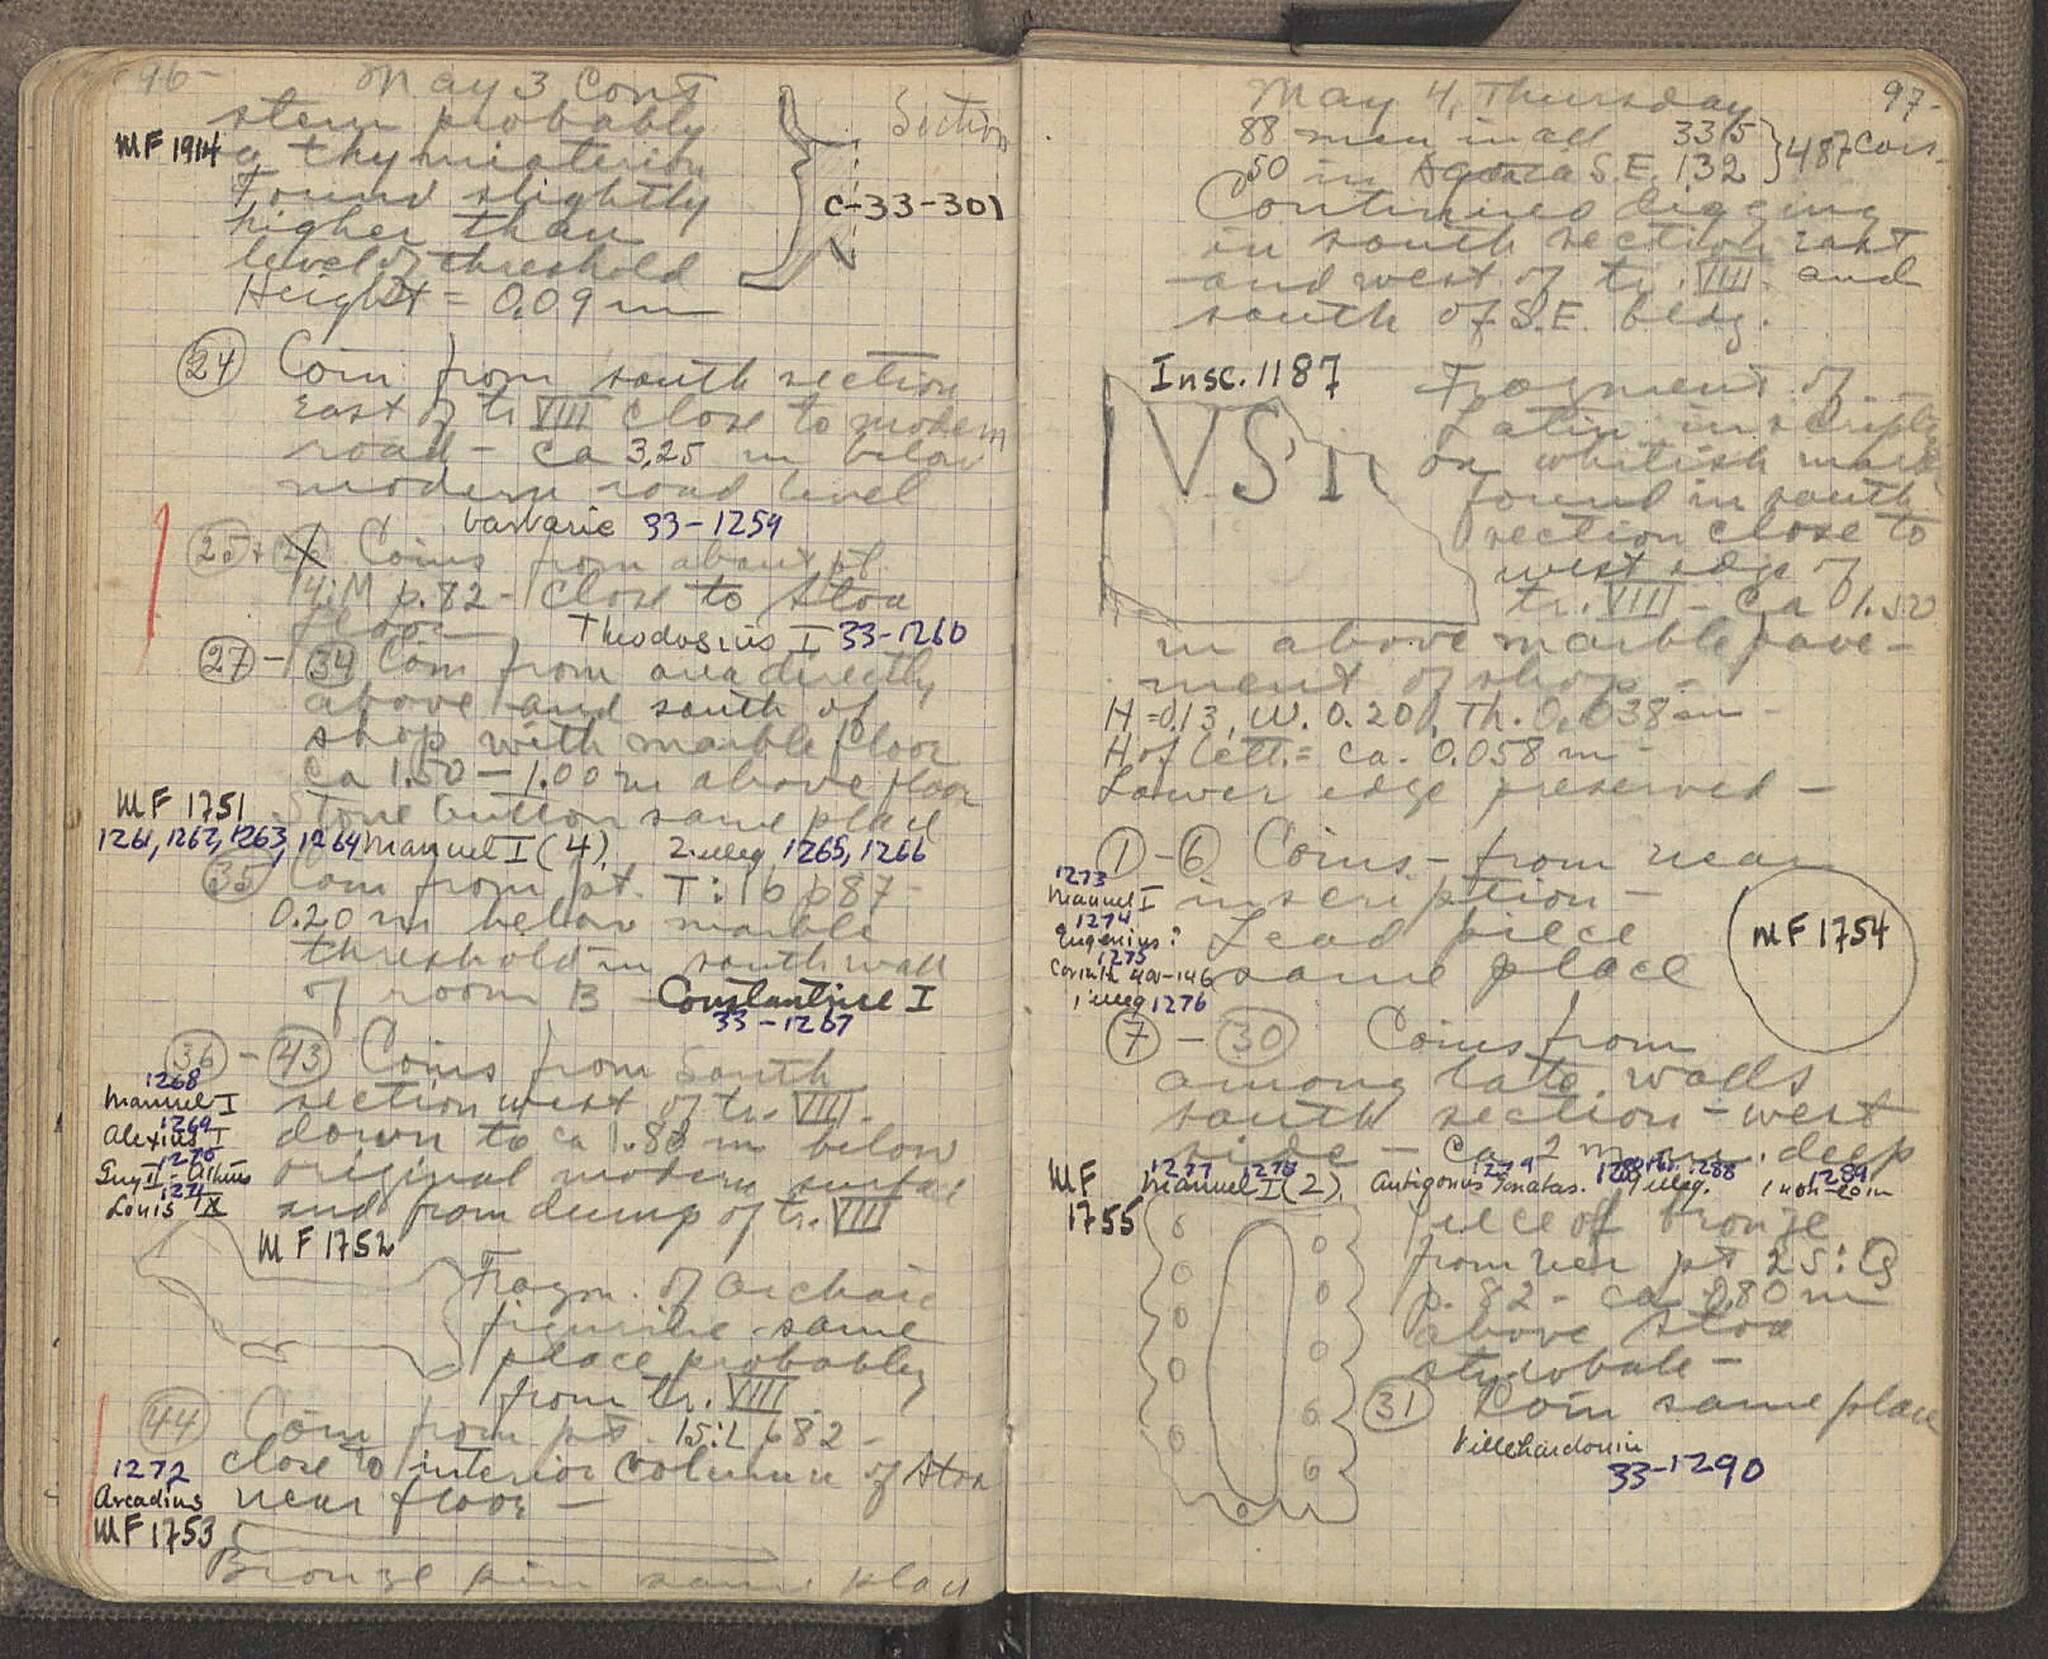 96-
May 3 Cont
stem probably
MF 1914
of thymiaterion
Found slightly
higher than
level of threshold
Height = 0.09 m
Section
C-33-301
24 Coin from south section
East of tr. VIII close to modern
road - ca 3.25 m below
modern road level
barbaric 33-1259
25 + 26 Coins from about pt.
14:M p.82 - Close to Stoa
floor
Theodosius I 33-1260
27 - 34 Coin from area directly
above and south of
shop with marble floor
Ca 1.50 - 1.00 m above floor
MF 1751
Stone button same place
1261, 1262, 1263, 1264 Manuel I (4), 2 illeg 1265, 1266
35 Coin from pt. T:16 p 87 -
0.20 m below marble
threshold in south wall
of room B - Constantine I
33-1267
36 - 43 Coins from South
section west of tr. VIII.
down to ca 1.80 m below
original modern surface
and from dump of tr. VIII
1268
Manuel I
1269
Alexius I
1270
Guy II - Athens
1271
Louis IX
MF 1752
Fragm. of archaic
figurine same
place probably
from tr. VIII.
44 Coin from pt. 15:L p82 -
close to interior column of Stoa
near floor -
1272
Arcadius
MF 1753
Bronze pin same place
97-
May 4, Thursday
88 men in all 335
50 in Agora S.E. 132
487 Coins
Continued digging
in south section east
and west of tr. VIII. and
south of S.E. bldg.
Insc. 1187
VSI
Fragment of
Latin inscription
on whitish marble
found in south
section close to
west edge of
tr. VIII - Ca 1.50
m above marble pave-
ment of shop -
H = 0.13, W. 0.20, Th. 0.038 m -
H of lett. = ca. 0.058 m -
Lower edge preserved -
1 - 6 Coins - from near
inscription -
Lead piece
same place
1273
Manuel I
1274
Eugenius?
1275
Corinth 400-146
1 illeg 1276
MF 1754
7 - 30 Coins from
among late walls
south section - west
side - Ca 2 m. deep
1277 1278 1279 1288 1289
Manuel I (2), Antigonus Gonatas. illeg. 1 non-coin
MF
1755
Piece of bronze
from near pt 25:
p. 82 - ca 0.80 m
above Stoa
stylobate -
31 Coin same place
Villehardouin
33-1290